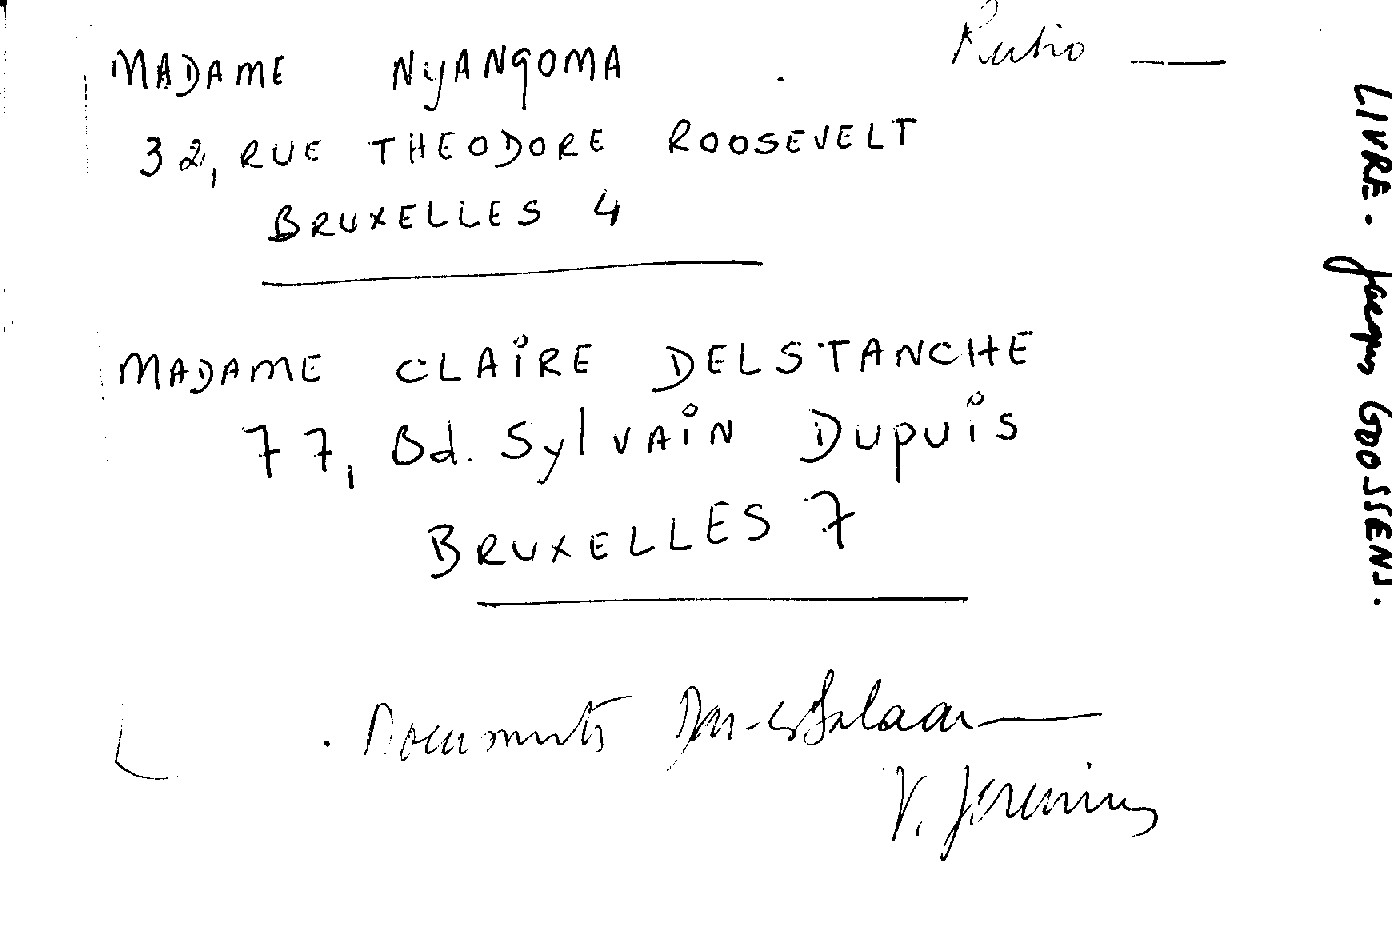 MADAME NYANGOMA
32, RUE THEODORE ROOSEVELT
BRUXELLES 4
MADAME CLAIRE DELSTANCHE
77, Bd. Sylvain Dupuis
BRUXELLES 7
Documents Dar-es-Salaam
V.
LIVRE. Jacques GOOSSENS.